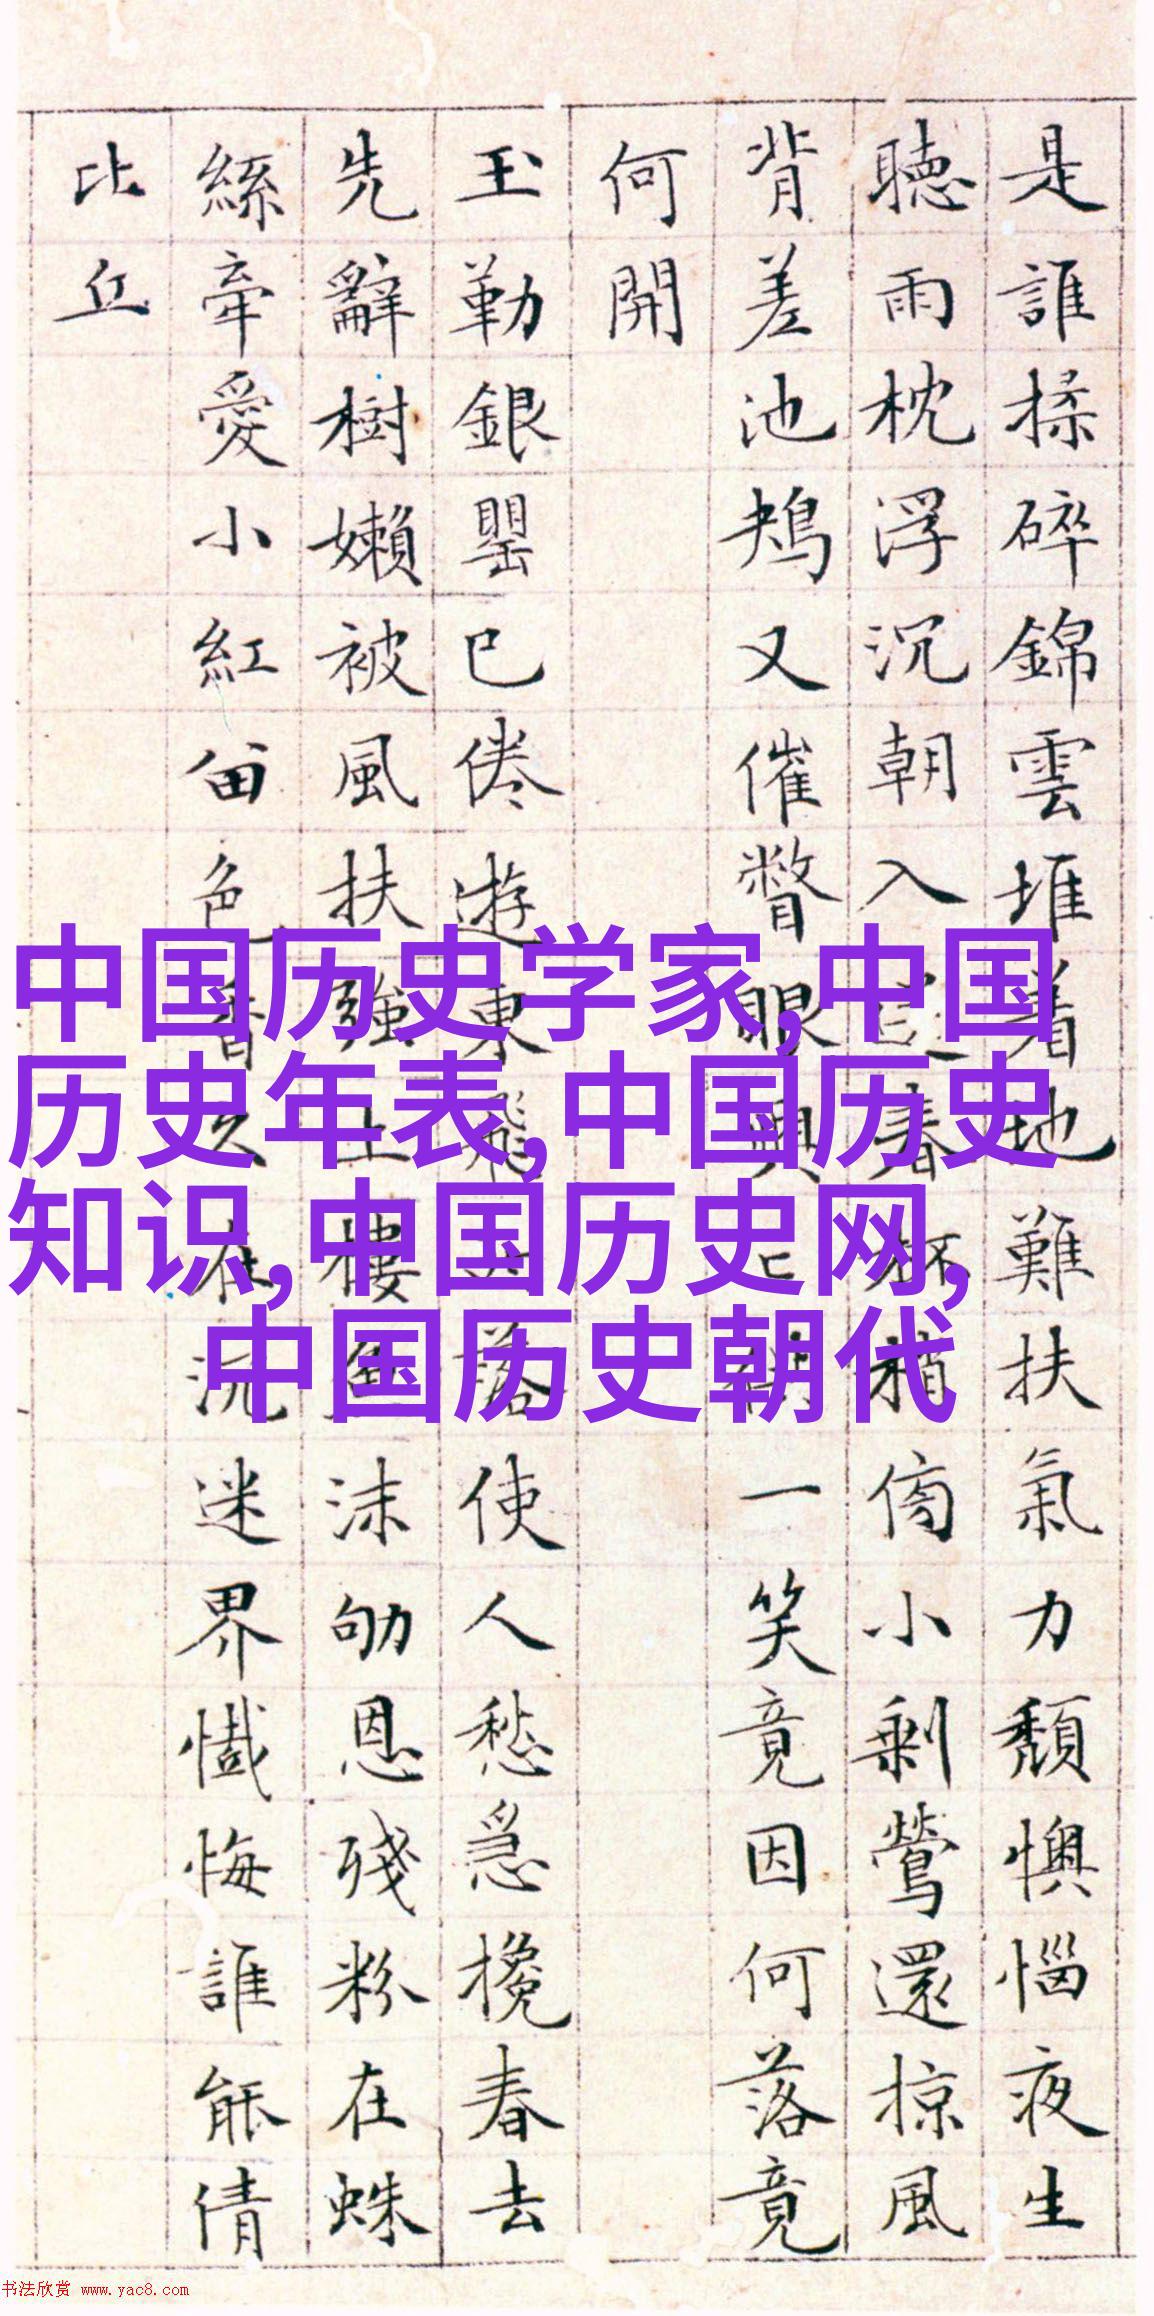 是誰揉碎錦雲堆着地難扶氣力頹懊惱夜生
聽雨枕浮沉朝入春梢傍小剩鶯還掠風
背差池鴂又催瞥眼興一笑竟因何落竟
何開
玉勒銀罌已倦遊東飛落使人愁急攙春去
先辭樹嬾被風扶強上樓魚沫劬恩殘粉在蛛
絲牽愛小紅留色香久在沉迷界懺悔誰能倩
比丘
中国历史学家,中国
历史年表,中国历史
知识,中国历史网,
中国历史朝代
书法欣赏 www.yac8.com